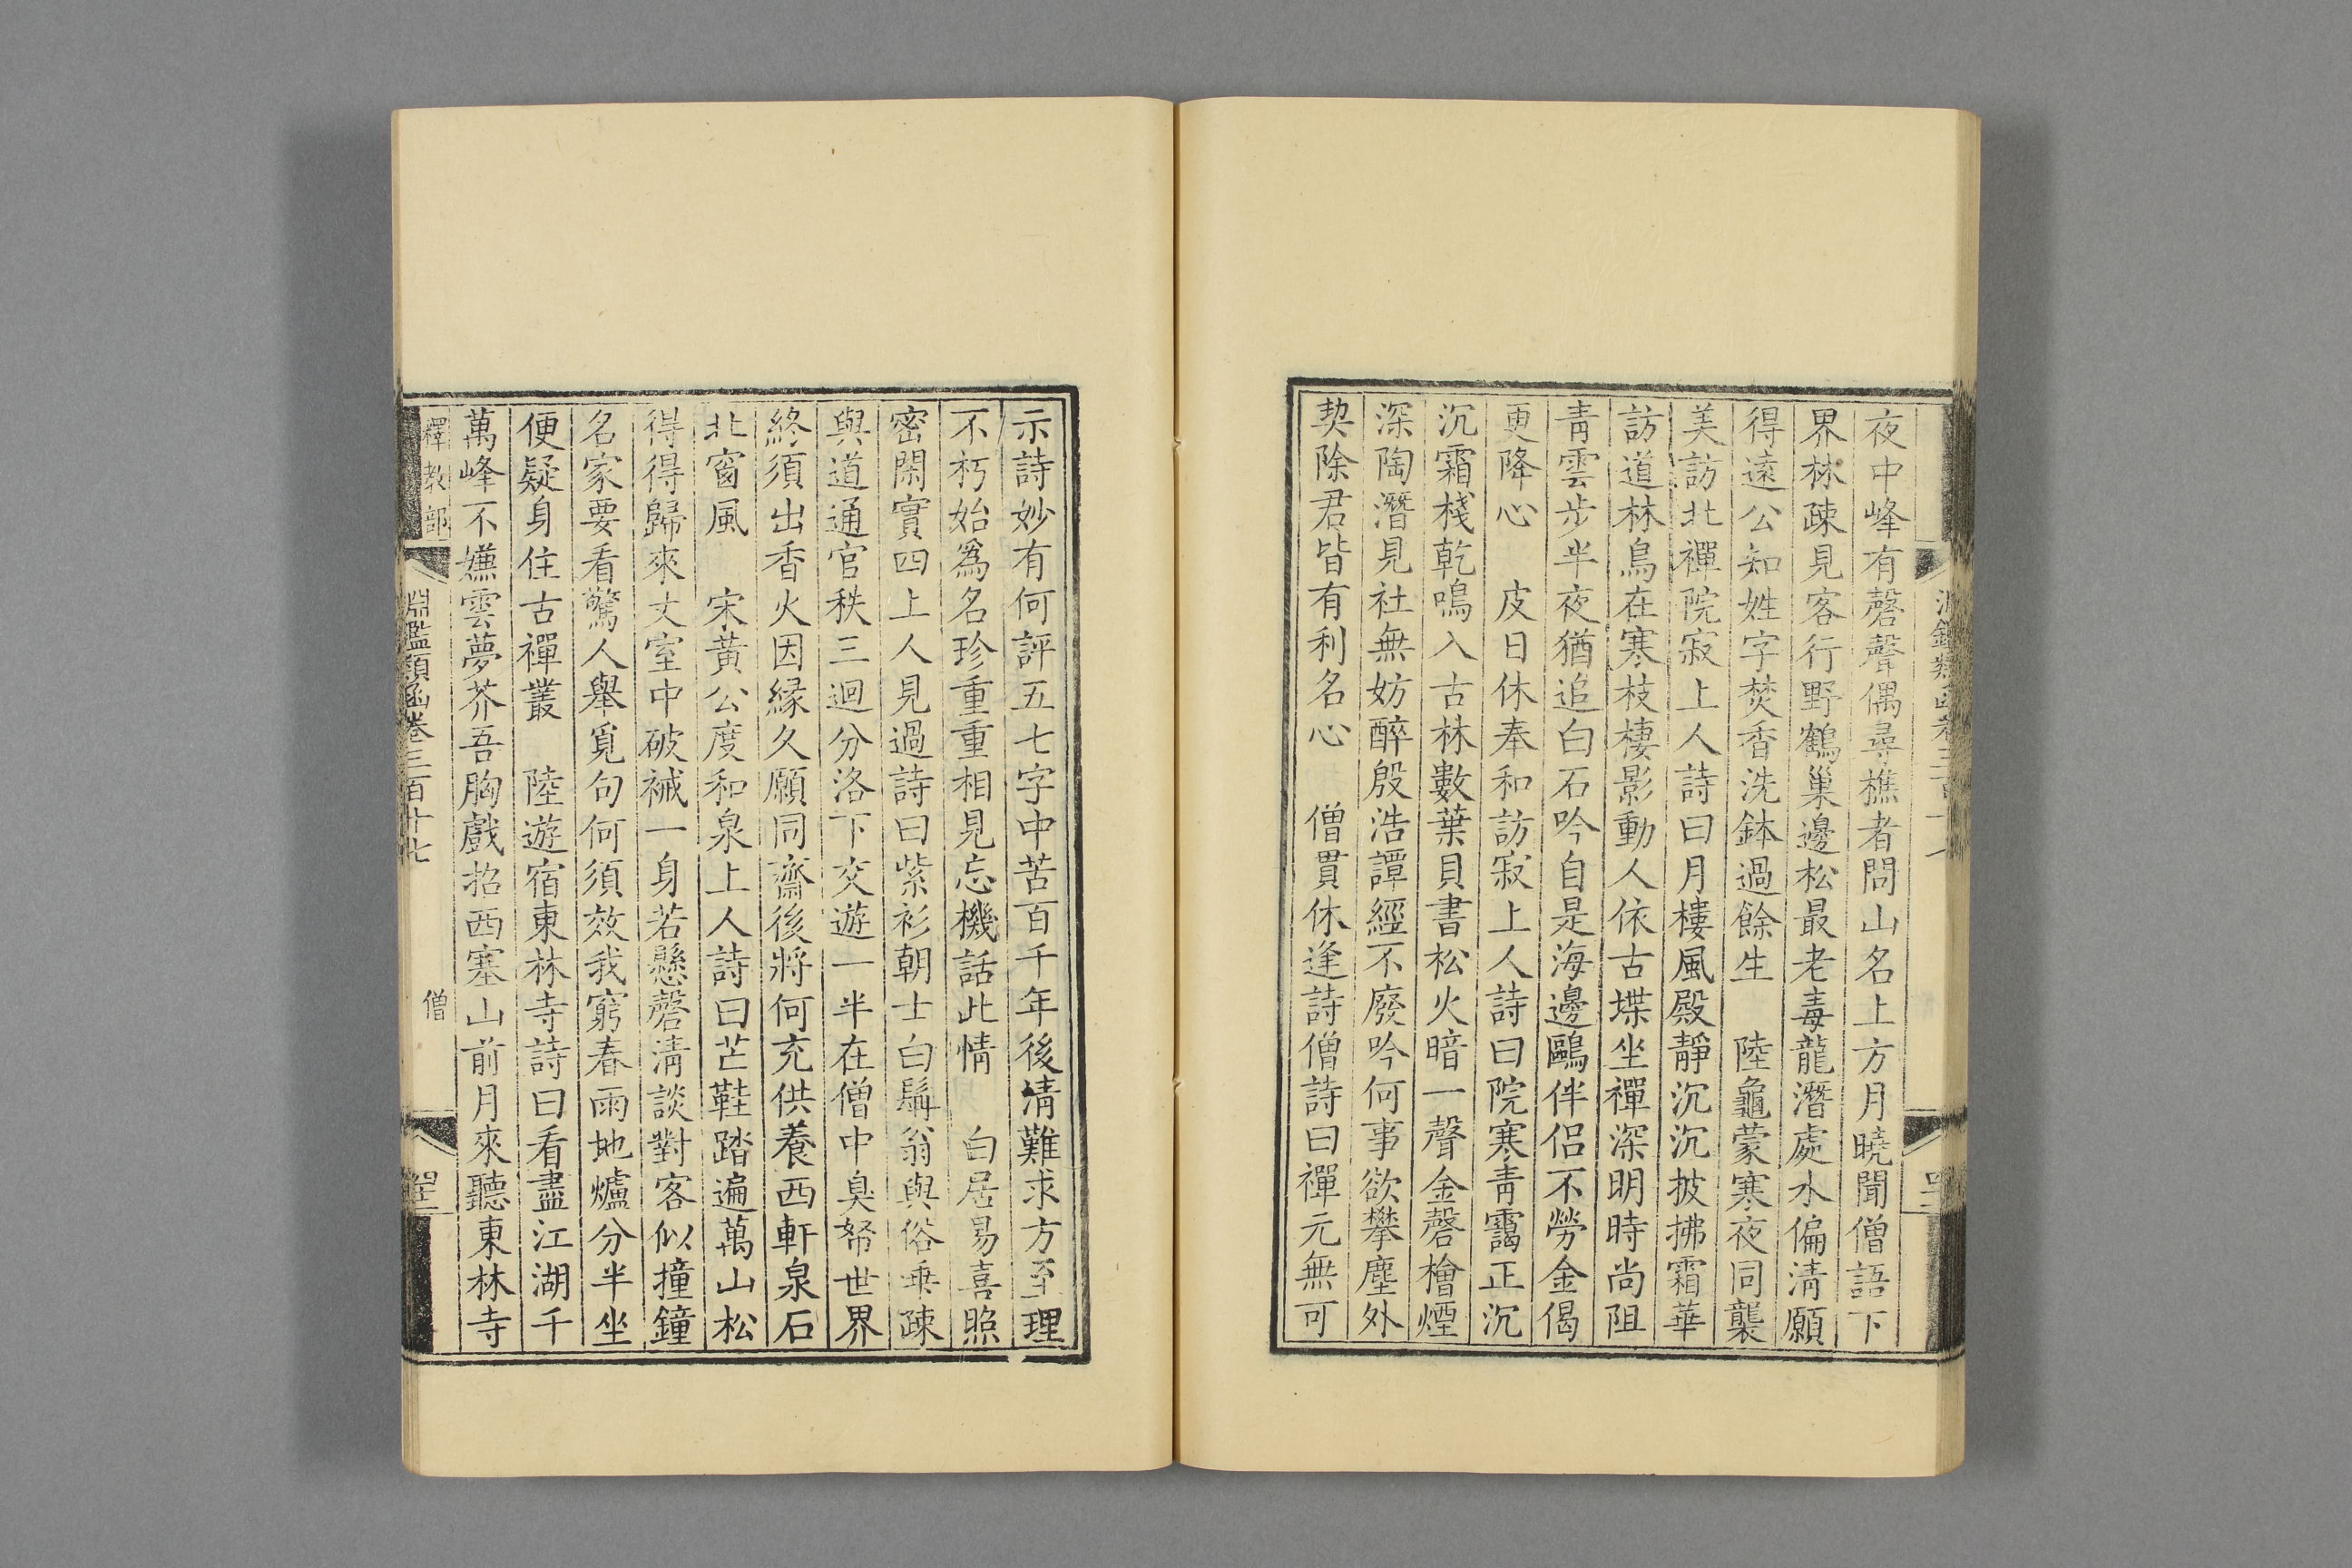 夜中峰有磬聲偶尋樵者問山名上方月曉聞僧語下
界林疎見客行野鶴巢邊松最老毒龍潛處水偏淸願
得遠公知姓字焚香洗鉢過餘生　陸龜蒙寒夜同襲
美訪北禪院寂上人詩曰月樓風殿靜沉沉披拂霜華
訪道林鳥在寒枝棲影動人依古堞坐禪深明時尚阻
靑雲步半夜猶追白石吟自是海邊鷗伴侶不勞金偈
更降心　皮日休奉和訪寂上人詩曰院寒靑靄正沉
沉霜棧乾鳴入古林數葉貝書松火暗一聲金磬檜煙
深陶潛見社無妨醉殷浩譚經不廢吟何事欲攀塵外
契除君皆有利名心　僧貫休逢詩僧詩曰禪元無可
示詩妙有何評五七字中苦百千年後淸難求方至理
不朽始爲名珍重重相見忘機話此情　白居易喜照
密閑實四上人見過詩曰紫衫朝士白鬚翁與俗乖疎
與道通官秩三迴分洛下交遊一半在僧中臭帤世界
終須出香火因緣久願同齋後將何充供養西軒泉石
北窗風　宋黃公度和泉上人詩曰芒鞋踏遍萬山松
得得歸來丈室中破裓一身若懸磬淸談對客似撞鐘
名家要看驚人舉覓句何須效我窮春雨地爐分半坐
便疑身住古禪叢　陸遊宿東林寺詩曰看盡江湖千
萬峰不嫌雲夢芥吾胸戲招西塞山前月來聽東林寺
釋敎部　淵鑑類函卷三百十七　僧